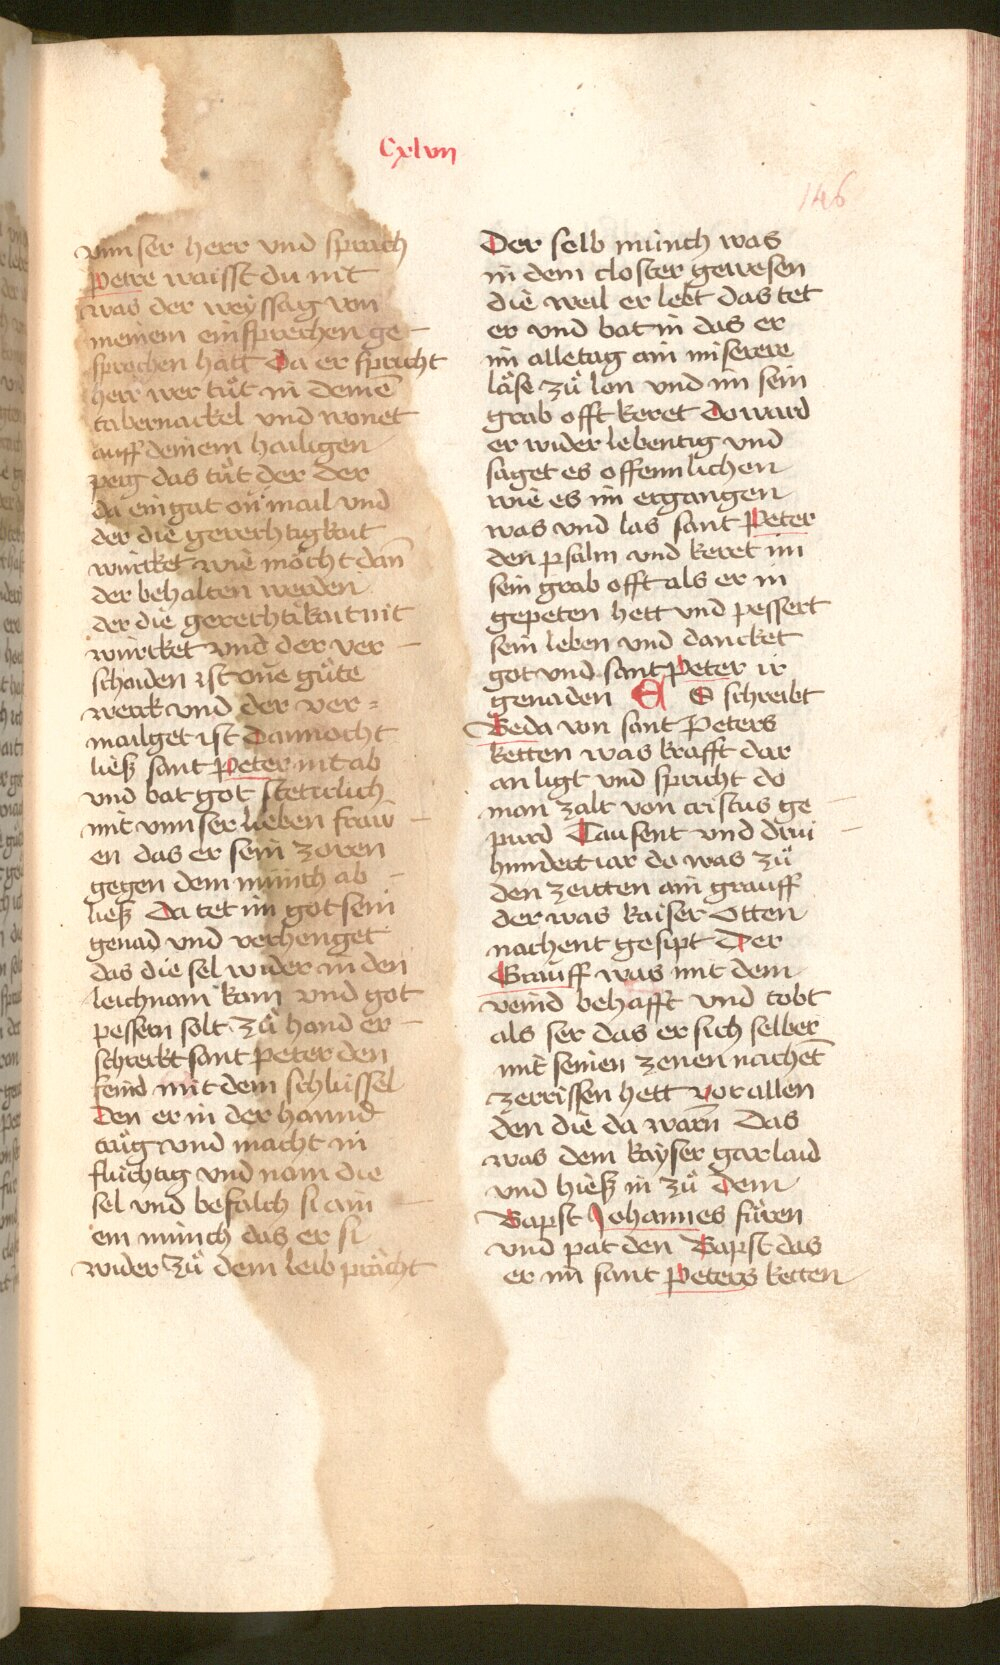 Cxlvii
146
vnnser herr vnd sprach
Petre waisst du nit
was der weyssag von
meinem einsprechen ge-
sprochen hatt Da er spricht
herr wer tůt in deinē
tabernackel vnd wonet
auff deinem hailigen
perg das tůt der der
da ein gat on mail vnd
der die gerechtigkait
würcket wie möcht dan̄
der behalten werden
der die gerechtikait nit
würcket vnd der ver-
schaiden ist one gůte
werck vnd der ver=
mailget ist Dannocht
liesz sant Peter nit ab
vnd bat got stettclich
mit vnnser lieben fraw-
en das er sein zoren
gegen dem münch ab-
liesz Da tet im got sein
genad vnd verhenget
das die sel wider in den
leichnam kam vnd got
pessern solt zů hand er-
schreckt sant peter den
feind mit dem schlüssel
Den er in der hannd
trůg vnd macht in
flüchtig vnd nam die
sel vnd befalch si ain-
em münch das er si
wider zů dem leib prächt
Der selb münch was
in dem closter gewesen
die weil er lebt das tet
er vnd bat in das er
im alletag ain miserere
läse zů lon vnd im sein
grab offt keret Do ward
er wider lebentig vnd
saget es offennlichen
wie es im ergangen
was vnd las sant Peter
den psalm vnd keret im
sein grab offt als er in
gepeten hett vnd pessert
sein leben vnd dancket
got vnd sant Peter ir
genaden E S schreibt
Beda von sant Peters
ketten was krafft dar
an ligt vnd spricht do
man zalt von cristus ge-
purd Tausent vnd drui-
hundert iar do was zů
den zeitten ain grauff
der was kaiser Otten
nachent gesipt Der
Grauff was mit dem
veind behafft vnd tobt
als ser das er sich selber
mit seinen zenen nachet
zerrissen hett vor allen
den die da warn̄ Das
was dem kayser gar laid
vnd hiesz in zů dem
Bapst Johannes fůren
vnd pat den Bapst das
er im sant Peters ketten